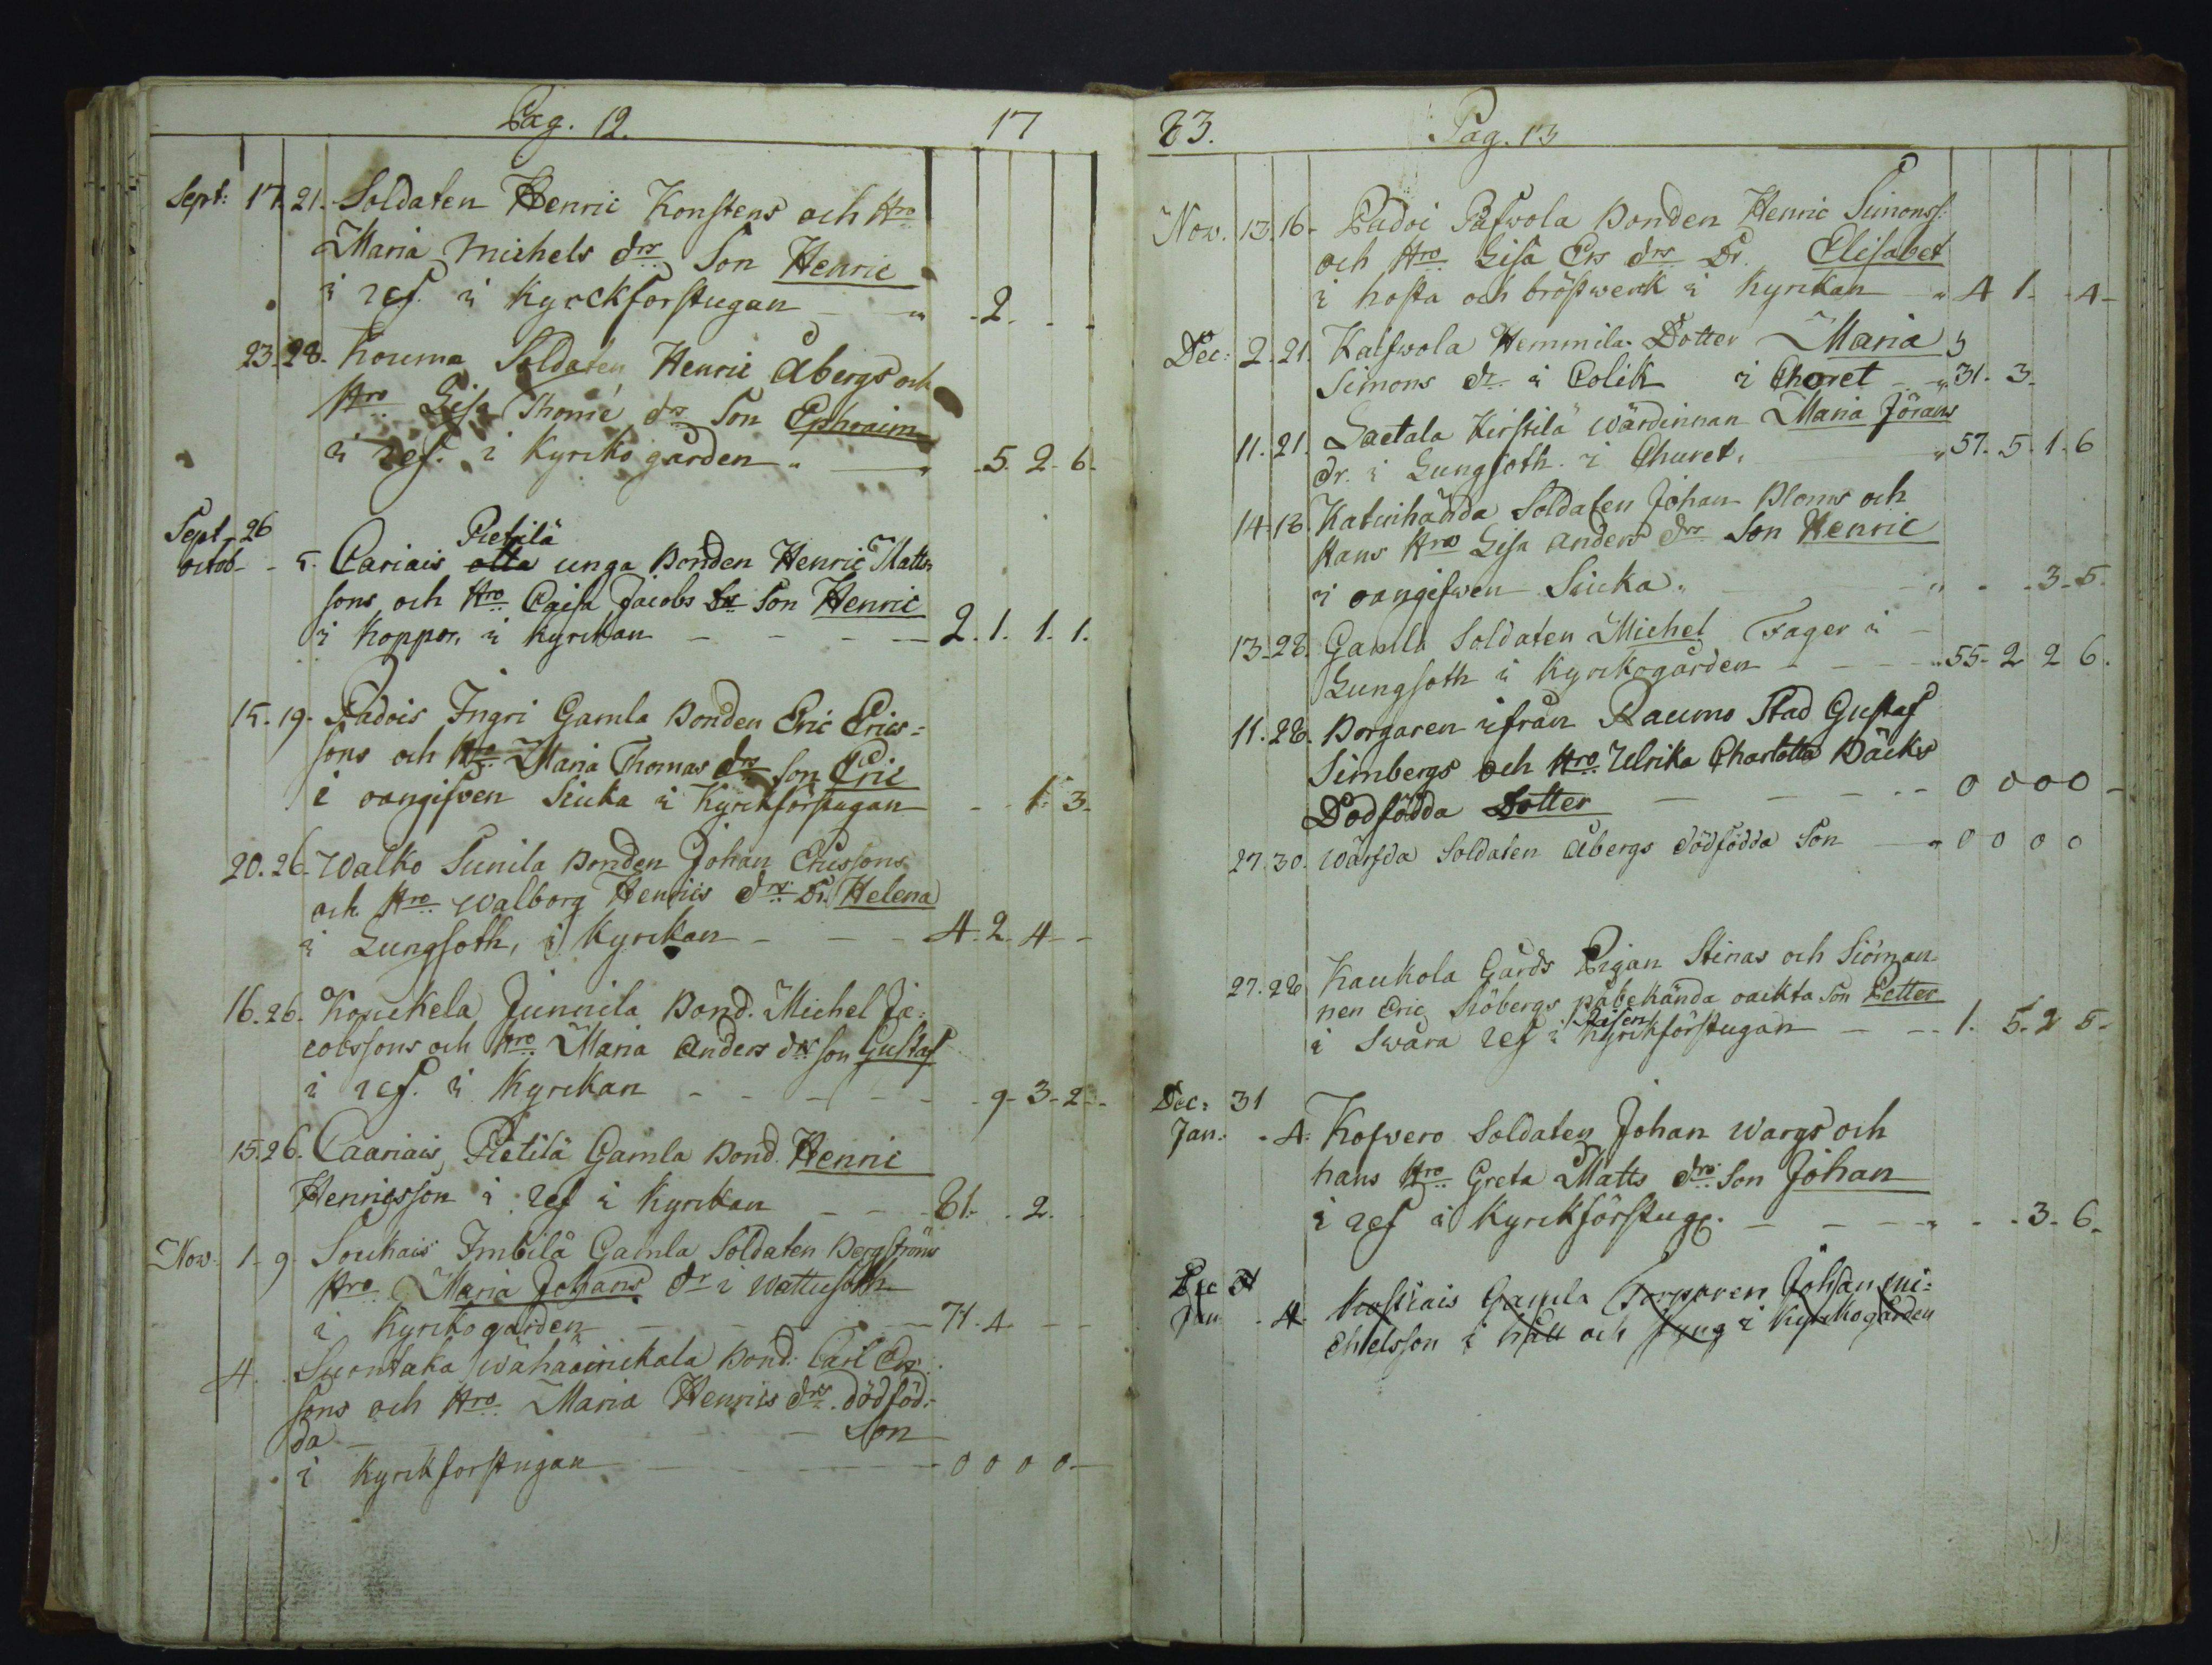 Pag. 12. 17
Sept: 17. 21. Soldaten Henric Konstens och Hro
Maria Michels drs Son Henric
i ref. i Kyrckforstugan - 2.
23. 28. Kouma Soldaten Henric Åbergs och
Hro Lisa Thomé drs Son Ephraim
i ref. i Kyrkogården - 5. 2. 6.
Sept. 26
Pietilä
octob. - 5. Cariais otta unga Bonden Henric Matts
sons och Hro Caisa Jacobs Dr Son Henric
i Koppor, i Kyrckan - 2. 1. 1. 1.
15. 19. Padois Ingri Gamla Bonden Eric Erics=
sons och Hro Maria Thomas drs Son Eric
i oangifven Siuka i Kyrckförstugan - 1. 3.
20. 26. Walko Sunila Bonden Johan Ericssons
och Hro Walborg Henrics drs Dr. Helena
i Lungsoth, i Kyrckan - 4. 2. 4.
16. 26. Kouckela Junnila Bond. Michel Ja=
cobssons och Hro Maria Anders drs Son Gustaf
i ref. i Kyrckan - 9. 3. 2.
15. 26. Caariais Pietilä Gamla Bond. Henric
Henricsson i ref i Kyrckan - 61. . 2.
Nov. 1. 9. Soukais Imbilä Gamla Soldaten Bergströms
Hro Maria Johans dr i Wattusoth
i Kyrckogården - 74. 4.
4. Suontaka Wähäänickala Bond. Carl Ers
sons och Hro Maria Henrics drs dödföd=
da - Son
i Kyrckforstugan - 0 0 0 0
83. Pag. 13
Nov. 13. 16. Padoi Pafwola Bonden Henric Simonss:
och Hro Lisa Ers drs Dr. Elisabet
i hosta och bröstwerk i Kyrckan 4 1 - 4
Dec: 2. 21. Kaifwola Hemmila Dotter Maria
Simons dr i Colik i Choret - 31. 3.
11. 21. Laetala Kirstilä wärdinnan Maria Jörans
dr. i Lungsoth i Churet. 57. 5. 1. 6
14. 18. Katinhända Soldaten Johan Bloms och
Hans Hro Lisa Anders drs Son Henric
i oangifwen Siuka. - 3. 5.
13. 28. Gamla Soldaten Michel Fager i
Lungsoth i Kyrckogården - 55. 2 2 6.
11. 28. Borgaren ifrån Raumo Stad Gustaf
Simbergs och Hro Ulrika Charlotta Bäcks
Dödfödda Dotter - 0 0 0 0
27. 30. Wärfda Soldaten Åbergs dödfödda Son - 0 0 0 0
27. 28 Kaukola Gårds Pigan Stinas och Siöman
nen Eric Siöbergs påbekända oäckta Son Petter
i Swåra ref i Kyrckförstugan - 1. 5. 2 5.
Dec: 31
Jan. - 4. Kofwero Soldaten Johan Wargs och
hans Hro Greta Matts drs Son Johan
i ref i Kyrckförstug. - 3. 6.
Dec 31
Jan - 4. Gamla Torparen Johan Mi=
chelsson i håll och styng i Kyrckogården